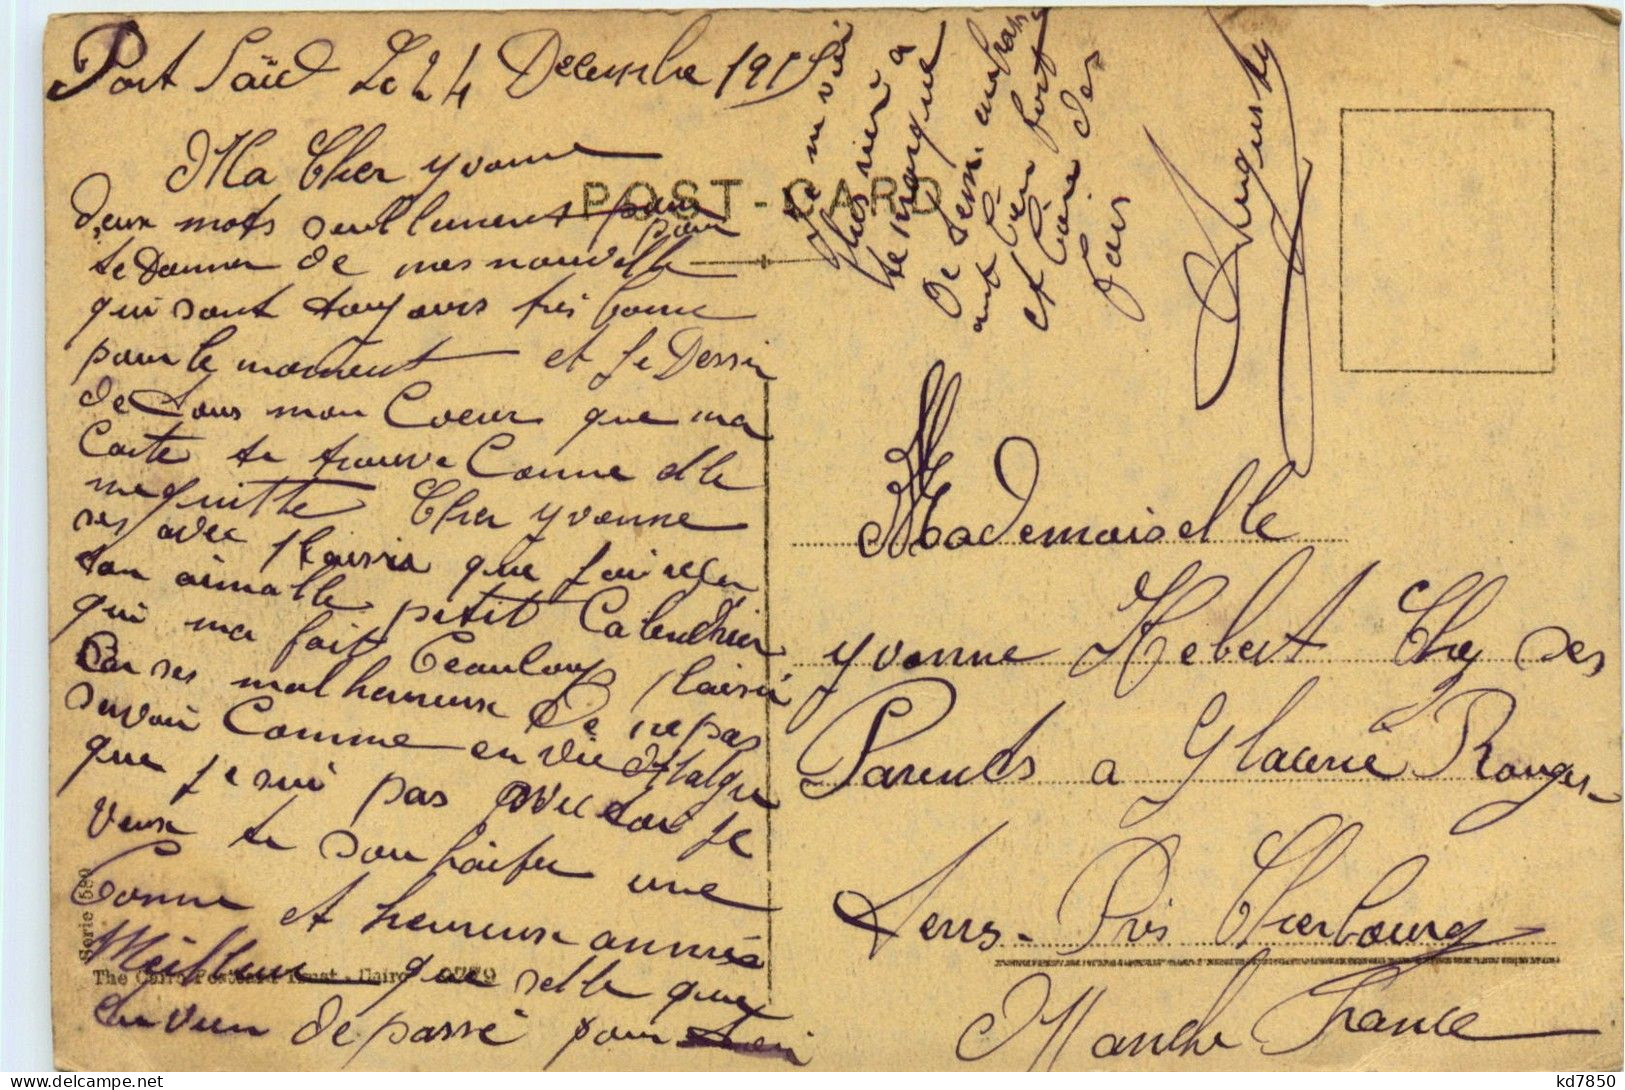 Port Saïd Le 24 Decembre 1915
Ma Cher yvonne
deux mots seullement pour
pour
te Donner de mes nouvelle
qui sont toujours très bonne
pour le moment et je Dessir
de tous mon Coeur que ma
Carte te trouve Comme elle
me quitte Cher yvonne
ses avec plaisir que j'ai reçu
ton aimable petit Calendrier
qui ma fait beaucoup plaisir
Car ses malheureux De ne pas
savoir Comme en vie
que je sui pas avec toi je
veux te souhaiter une
bonne et heureuse année
Meilleur que selle que
tu vien de passé pour toi
POST-CARD
Je
plus rien a
te marque
De
et bien fort
et bien des
fois
Auguste
Mademoiselle
yvonne Hebert Chez ses
Parents a Glacerie Rouges-
Terres- Près Cherbourg
Manche France
Serie 589
The Cairo Postcard Trust - Cairo
kd7850